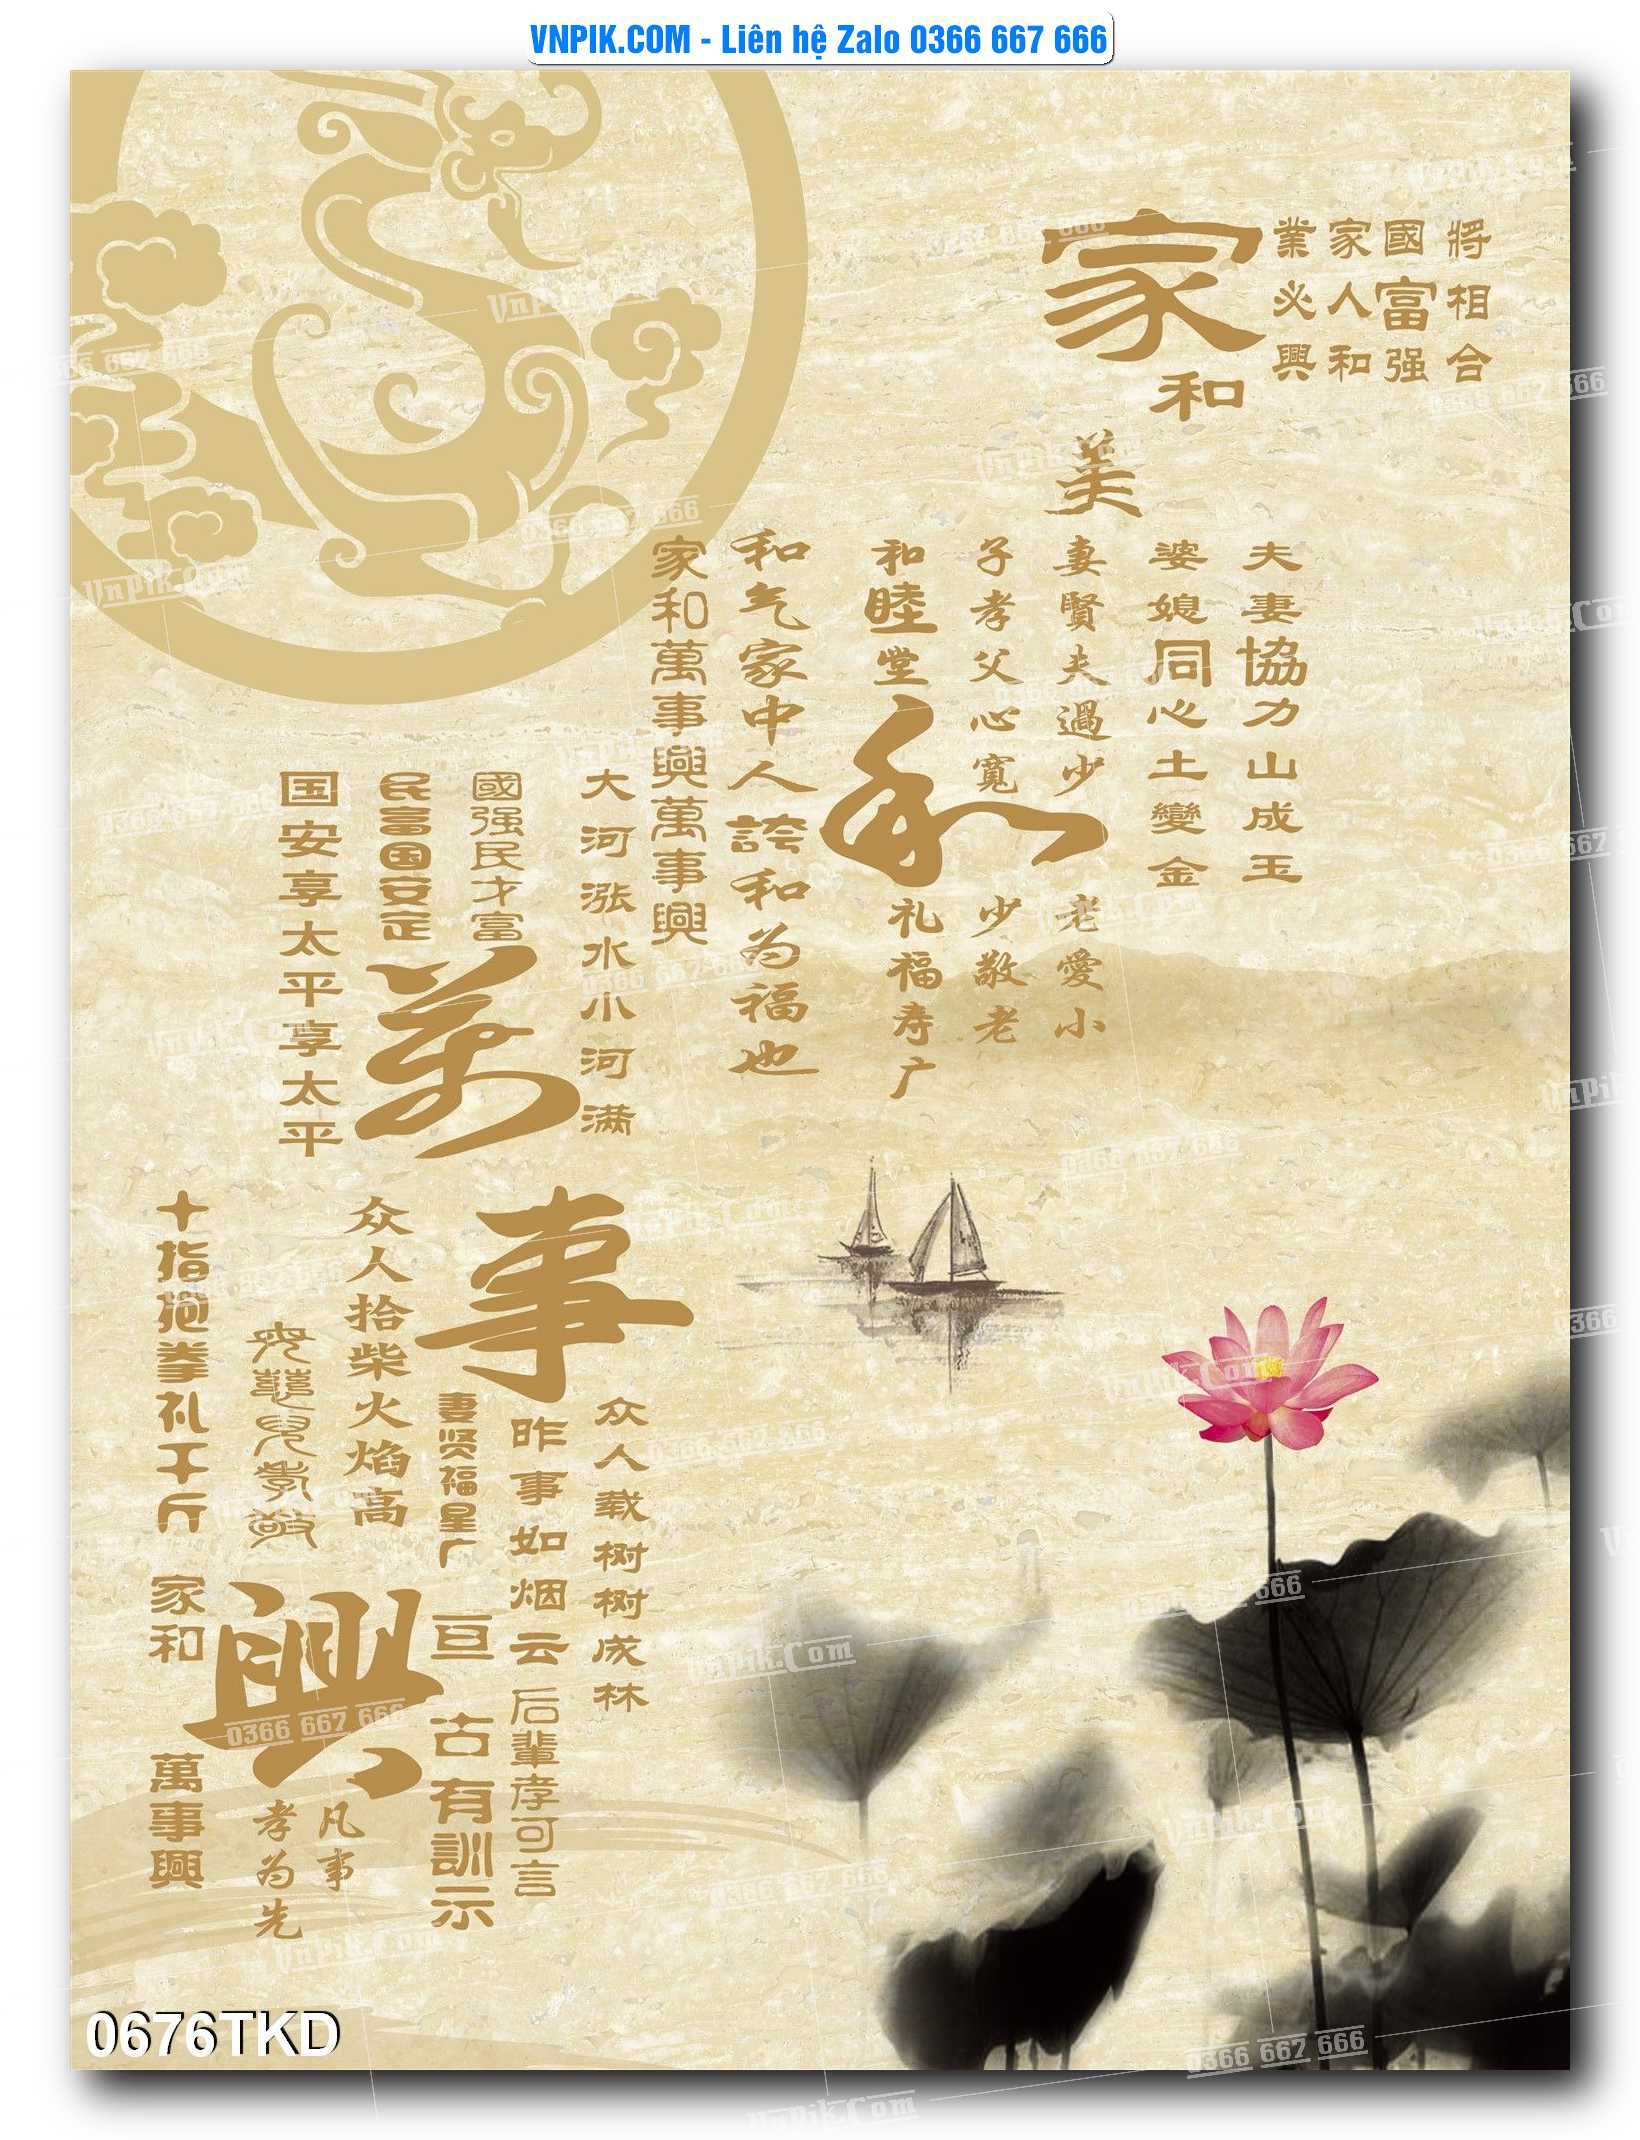 VNPIK.COM - Liên hệ Zalo 0366 667 666
將相合
國富强
家人和
業必興
家
和
美
夫妻協力山成玉
婆媳同心土變金
妻賢夫過少
老愛小
子孝父心寬
少敬老
和睦堂
礼福寿广
和
和气家中人誇和为福也
家和萬事興萬事興
大河涨水小河满
國强民才富
民富国安定
国安享太平享太平
萬
事
众人载树树成林
昨事如烟云
后輩孝可言
妻贤福星广
亘古有訓示
众人拾柴火焰高
十指抱拳礼千斤
家和
萬事興
興
凡事
孝为先
0676TKD
VnPik.Com
0366 667 666